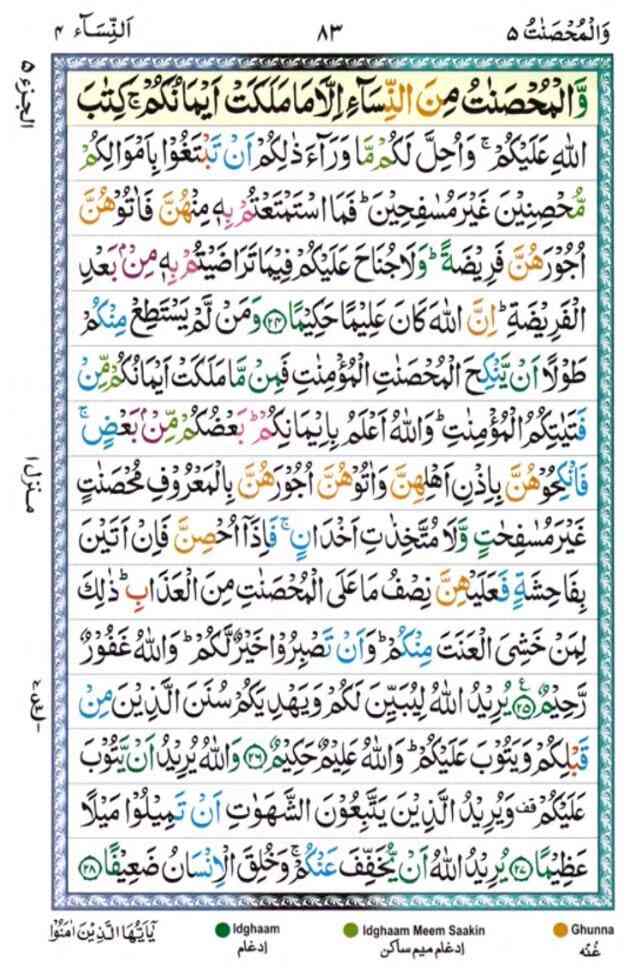 وَالْمُحْصَنٰتُ ٥
٨٣
اَلنِّسَآء ٤
الجزء ٥
وَّالْمُحْصَنٰتُ مِنَ النِّسَآءِ اِلَّا مَا مَلَكَتْ اَيْمَانُكُمْ ۚ كِتٰبَ
اللّٰهِ عَلَيْكُمْ ۚ وَاُحِلَّ لَكُمْ مَّا وَرَآءَ ذٰلِكُمْ اَنْ تَبْتَغُوْا بِاَمْوَالِكُمْ
مُّحْصِنِيْنَ غَيْرَ مُسٰفِحِيْنَ ؕ فَمَا اسْتَمْتَعْتُمْ بِهٖ مِنْهُنَّ فَاٰتُوْهُنَّ
اُجُوْرَهُنَّ فَرِيْضَةً ؕ وَلَا جُنَاحَ عَلَيْكُمْ فِيْمَا تَرَاضَيْتُمْ بِهٖ مِنْۢ بَعْدِ
الْفَرِيْضَةِ ؕ اِنَّ اللّٰهَ كَانَ عَلِيْمًا حَكِيْمًا ﴿٢٤﴾ وَمَنْ لَّمْ يَسْتَطِعْ مِنْكُمْ
طَوْلًا اَنْ يَّنْكِحَ الْمُحْصَنٰتِ الْمُؤْمِنٰتِ فَمِنْ مَّا مَلَكَتْ اَيْمَانُكُمْ مِّنْ
فَتَيٰتِكُمُ الْمُؤْمِنٰتِ ؕ وَاللّٰهُ اَعْلَمُ بِاِيْمَانِكُمْ ؕ بَعْضُكُمْ مِّنْۢ بَعْضٍ ۚ
فَانْكِحُوْهُنَّ بِاِذْنِ اَهْلِهِنَّ وَاٰتُوْهُنَّ اُجُوْرَهُنَّ بِالْمَعْرُوْفِ مُحْصَنٰتٍ
غَيْرَ مُسٰفِحٰتٍ وَّلَا مُتَّخِذٰتِ اَخْدَانٍ ۚ فَاِذَاۤ اُحْصِنَّ فَاِنْ اَتَيْنَ
بِفَاحِشَةٍ فَعَلَيْهِنَّ نِصْفُ مَا عَلَى الْمُحْصَنٰتِ مِنَ الْعَذَابِ ؕ ذٰلِكَ
لِمَنْ خَشِيَ الْعَنَتَ مِنْكُمْ ؕ وَاَنْ تَصْبِرُوْا خَيْرٌ لَّكُمْ ؕ وَاللّٰهُ غَفُوْرٌ
رَّحِيْمٌ ﴿٢٥﴾ يُرِيْدُ اللّٰهُ لِيُبَيِّنَ لَكُمْ وَيَهْدِيَكُمْ سُنَنَ الَّذِيْنَ مِنْ
قَبْلِكُمْ وَيَتُوْبَ عَلَيْكُمْ ؕ وَاللّٰهُ عَلِيْمٌ حَكِيْمٌ ﴿٢٦﴾ وَاللّٰهُ يُرِيْدُ اَنْ يَّتُوْبَ
عَلَيْكُمْ ۟ وَيُرِيْدُ الَّذِيْنَ يَتَّبِعُوْنَ الشَّهَوٰتِ اَنْ تَمِيْلُوْا مَيْلًا
عَظِيْمًا ﴿٢٧﴾ يُرِيْدُ اللّٰهُ اَنْ يُّخَفِّفَ عَنْكُمْ ۚ وَخُلِقَ الْاِنْسَانُ ضَعِيْفًا ﴿٢٨﴾
منزل ١
يٰۤاَيُّهَا الَّذِيْنَ اٰمَنُوْا
Idghaam
إدغام
Idghaam Meem Saakin
إدغام ميم ساكن
Ghunna
غنه